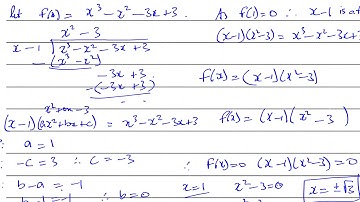 let f(x) = x³ - x² - 3x + 3. As f(1) = 0 ∴ x - 1 is a
(x-1)(x²-3) = x³ - x² - 3x +
x² - 3
x - 1 x³ - x² - 3x + 3
-(x³ - x²)
-3x + 3
-(-3x + 3)
f(x) = (x-1)(x²-3)
x² + 0x - 3
(x-1)(ax² + bx + c) = x³ - x² - 3x + 3
f(x) = (x-1)(x² - 3)
a = 1
-c = 3 ∴ c = -3
∴ f(x) = 0 (x-1)(x²-3) = 0
b - a = -1
∴ b = 0
x = 1 x² - 3 = 0 x = ±√3